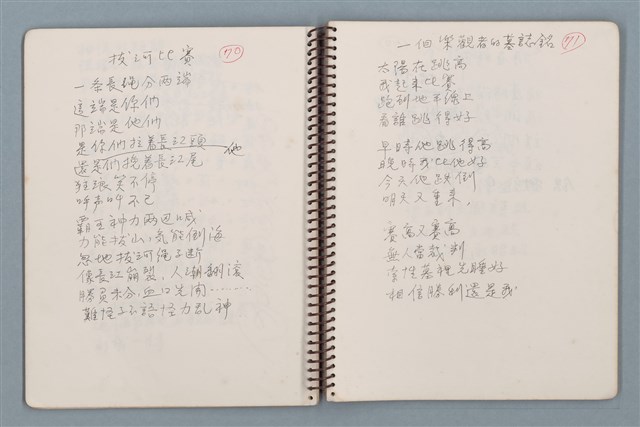 拔河比賽 70
一条長绳分两端
這端是你們
那端是他們
是你們拉着長江頭
還是他們挽着長江尾
狂浪笑不停
呼声叫不已
霸王神力两边喊
力能拔山，気能倒海
忽地拔河绳子断
像長江崩裂，人潮翻滾
勝負未分，血口先開………
難怪子不語怪力乱神
一個樂觀者的墓誌銘 71
太陽在跳高
我起来比賽
跑到地平線上
看誰跳得好
早時他跳得高
晚時我比他好
今天他跌倒
明天又重来，
賽高又賽高
無人當裁判
索性墓裡先睡好
相信勝利還是我